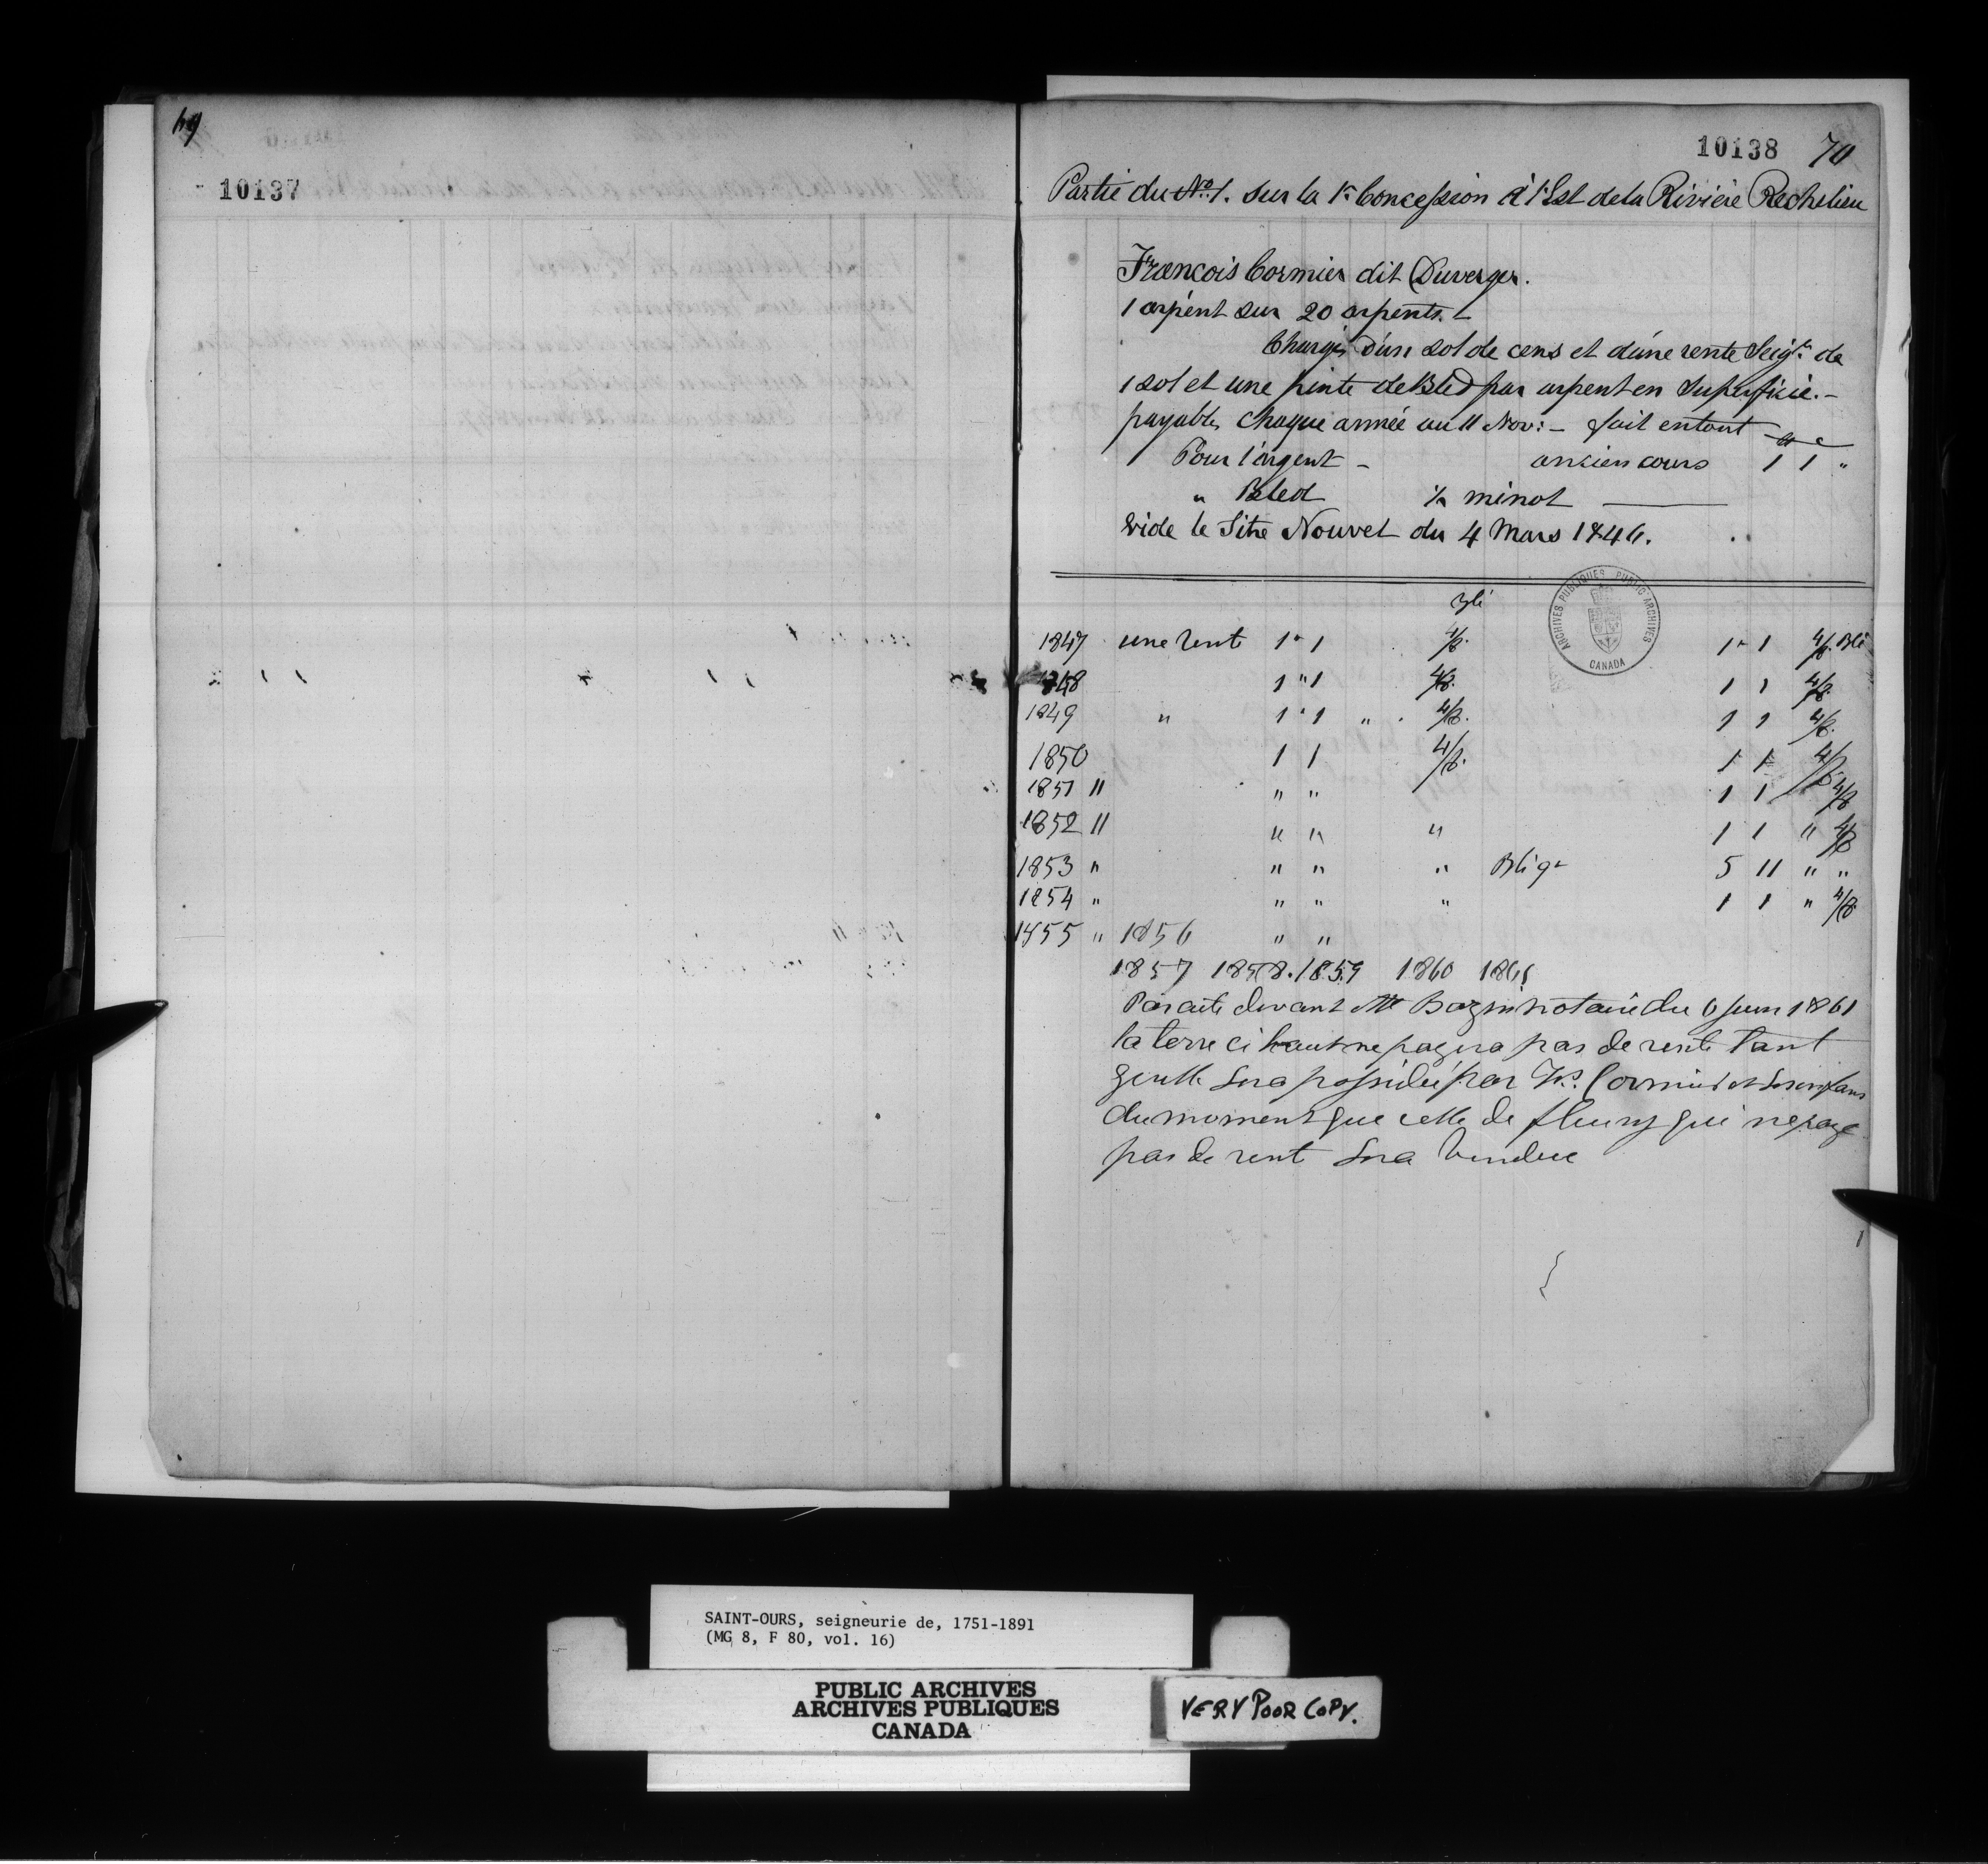 69
10137
10138 70
Partie du No. 1. sur la 1re Concession à l'Est de la Rivière Rechelieu
Francois Cormier dit Duverger.
1 arpent sur 20 arpents.
Chargé d'un sol de cens et d'une rente Seigle de
1 sol et une pinte de Bled par arpent en Superficie.-
payable chaque année au 11 Nov: - fait entout
Pour l'argent - ancien cours 1 1 "
" Bled minot
Vide le Titre Nouvel du 4 Mars 1846.
Blé
1847 une rente 1 " 1 4/8. 1 " 1 4/8. Blé
1848 1 " 1 4/8. 1 1 4/8.
1849 " 1 " 1 " 4/8. 1 1 4/8.
1850 1 1 4/8. 1 1 4/8.
1851 " " " 1 1 4/8
1852 " " " " 1 1 " 4/8
1853 " " " " Blé 5 11 " "
1854 " " " " 1 1 " 4/8.
1855 " 1856 " "
1857 1858. 1859 1860 1861
Par acte devant Mtre Bazin notaire du 6 juin 1861
la terre ci haut ne payera pas de rente tant
qu'elle sera possédée par Frs. Cormier et ses enfans
du moment que celle de fleury qui ne paye
pas de rent sera vendue
ARCHIVES PUBLIQUES PUBLIC ARCHIVES
CANADA
SAINT-OURS, seigneurie de, 1751-1891
(MG 8, F 80, vol. 16)
PUBLIC ARCHIVES
ARCHIVES PUBLIQUES
CANADA
VERY POOR COPY.